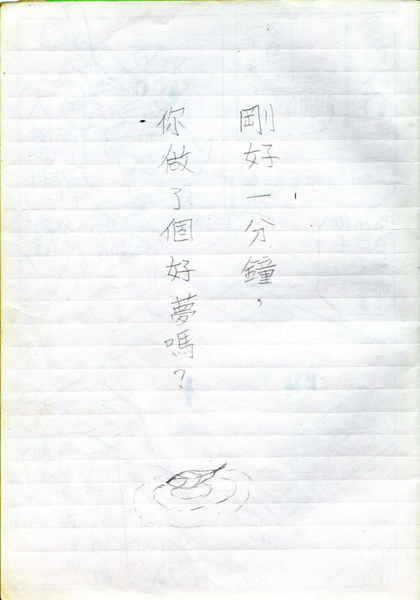 剛好一分鐘，
你做了個好夢嗎？